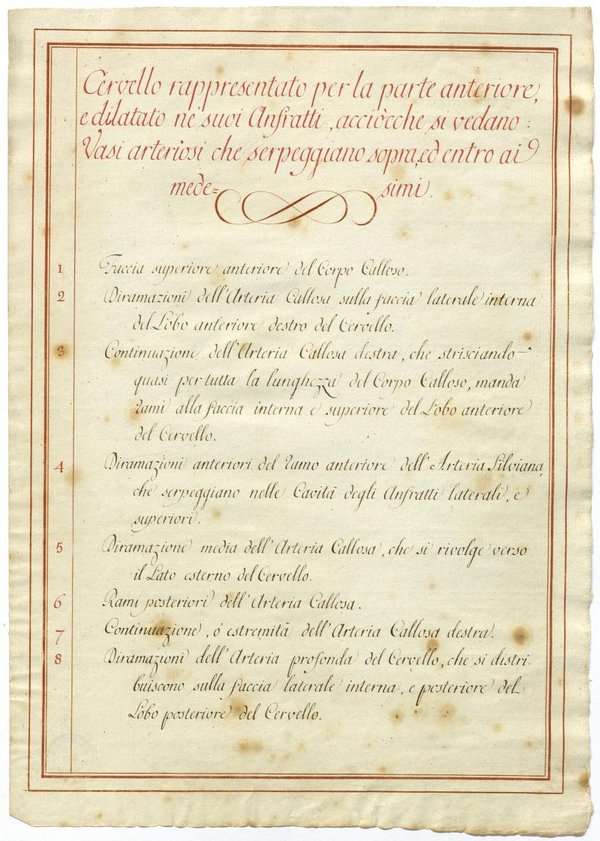 Cervello rappresentato per la parte anteriore,
e dilatato ne' suoi Anfratti, acciòcche si vedano i
Vasi arteriosi che serpeggiano sopra, ed entro ai
mede= simi.
1 Faccia superiore anteriore del Corpo Calloso.
2 Diramazioni dell'Arteria Callosa sulla faccia laterale interna
del Lobo anteriore destro del Cervello.
3 Continuazione dell'Arteria Callosa destra, che strisciando
quasi per tutta la lunghezza del Corpo Calloso, manda
rami alla faccia interna e superiore del Lobo anteriore
del Cervello.
4 Diramazioni anteriori del ramo anteriore dell'Arteria Silviana,
che serpeggiano nelle Cavità degli Anfratti laterali, e
superiori.
5 Diramazione media dell'Arteria Callosa, che si rivolge verso
il Lato esterno del Cervello.
6 Rami posteriori dell'Arteria Callosa.
7 Continuazione, ò estremità dell'Arteria Callosa destra.
8 Diramazioni dell'Arteria profonda del Cervello, che si distri-
buiscono sulla faccia laterale interna, e posteriore del
Lobo posteriore del Cervello.